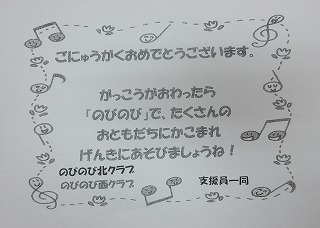 ごにゅうがくおめでとうございます。
がっこうがおわったら
「のびのび」で、たくさんの
おともだちにかこまれ
げんきにあそびましょうね！
のびのび北クラブ
のびのび西クラブ
支援員一同